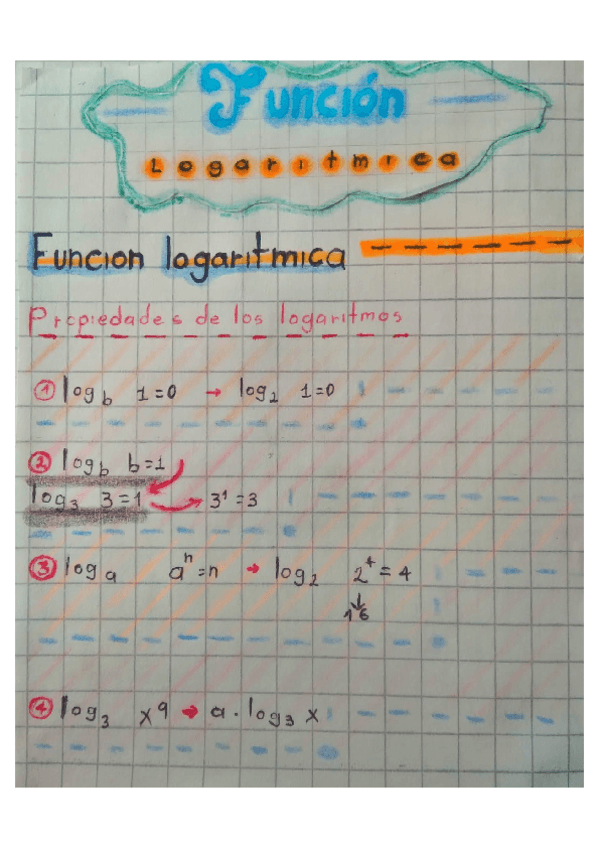 Función
Logaritmica
Funcion logaritmica
Propiedades de los logaritmos
① log_b 1=0 → log₂ 1=0
② log_b b=1
log₃ 3=1 → 3¹=3
③ log_a aⁿ=n → log₂ 2⁴=4
↓
16
④ log₃ xᵃ → a·log₃ x